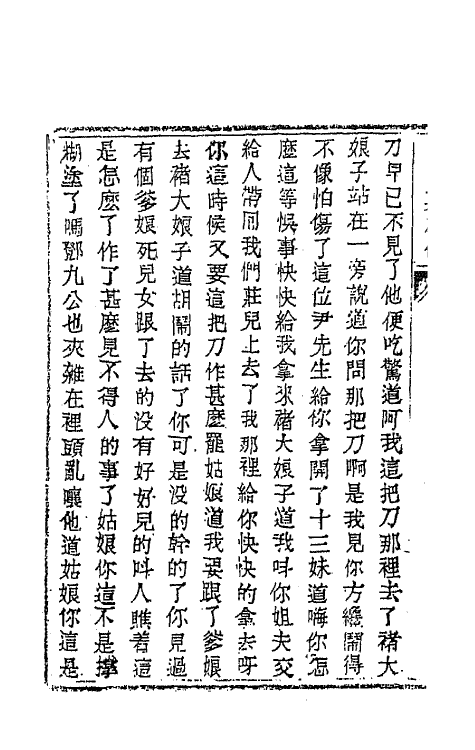 刀早已不見了他便吃驚道阿我這把刀那裡去了褚大
娘子站在一旁說道你問那把刀啊是我見你方纔鬧得
不像怕傷了這位尹先生給你拿開了十三妹道嗨你怎
麼這等悞事快快給我拿來褚大娘子道我呌你姐夫交
給人帶囘我們莊兒上去了我那裡給你快快的拿去呀
你這時候又要這把刀作甚麼罷姑娘道我要跟了爹娘
去褚大娘子道胡鬧的話了你可是没的幹的了你見過
有個爹娘死兒女跟了去的没有好好兒的呌人瞧着這
是怎麼了作了甚麼見不得人的事了姑娘你這不是撑
糊塗了嗎鄧九公也夾雜在裡頭亂嚷他道姑娘你這是